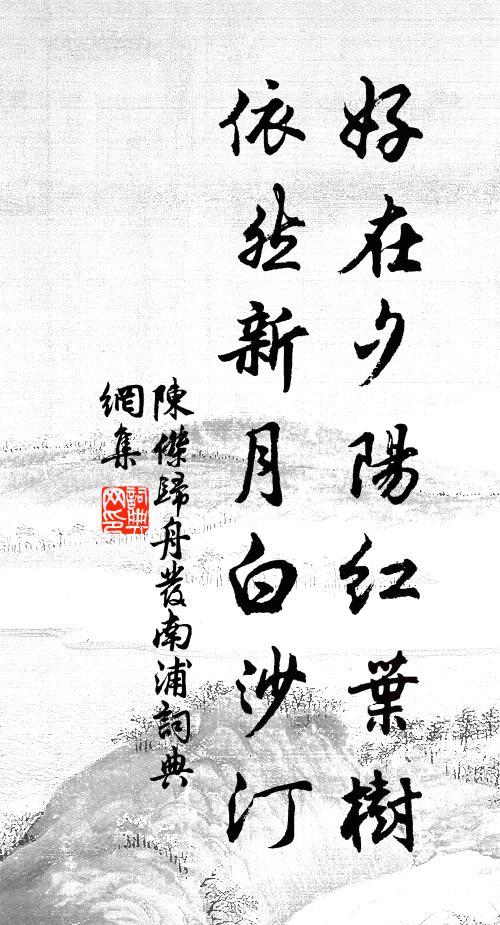 好在夕陽紅葉樹
依然新月白沙汀
陳傑歸舟發南浦詞典
網集
詞典
网印